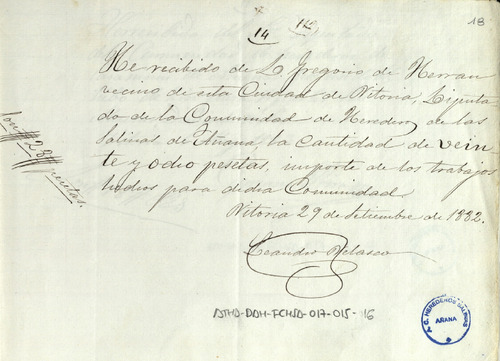 18
14
He recibido de D. Gregorio de Herran
vecino de esta Ciudad de Vitoria, Diputa
do de la Comunidad de Herederos de las
Salinas de Añana, la cantidad de vein
te y ocho pesetas, importe de los trabajos
hechos para dicha Comunidad
Vitoria 29 de Setiembre de 1882.
Leandro Velasco
Son 28 pesetas.
ATHA-DAH-FCHSA-017-015-16
C. HEREDEROS SALINAS
AÑANA